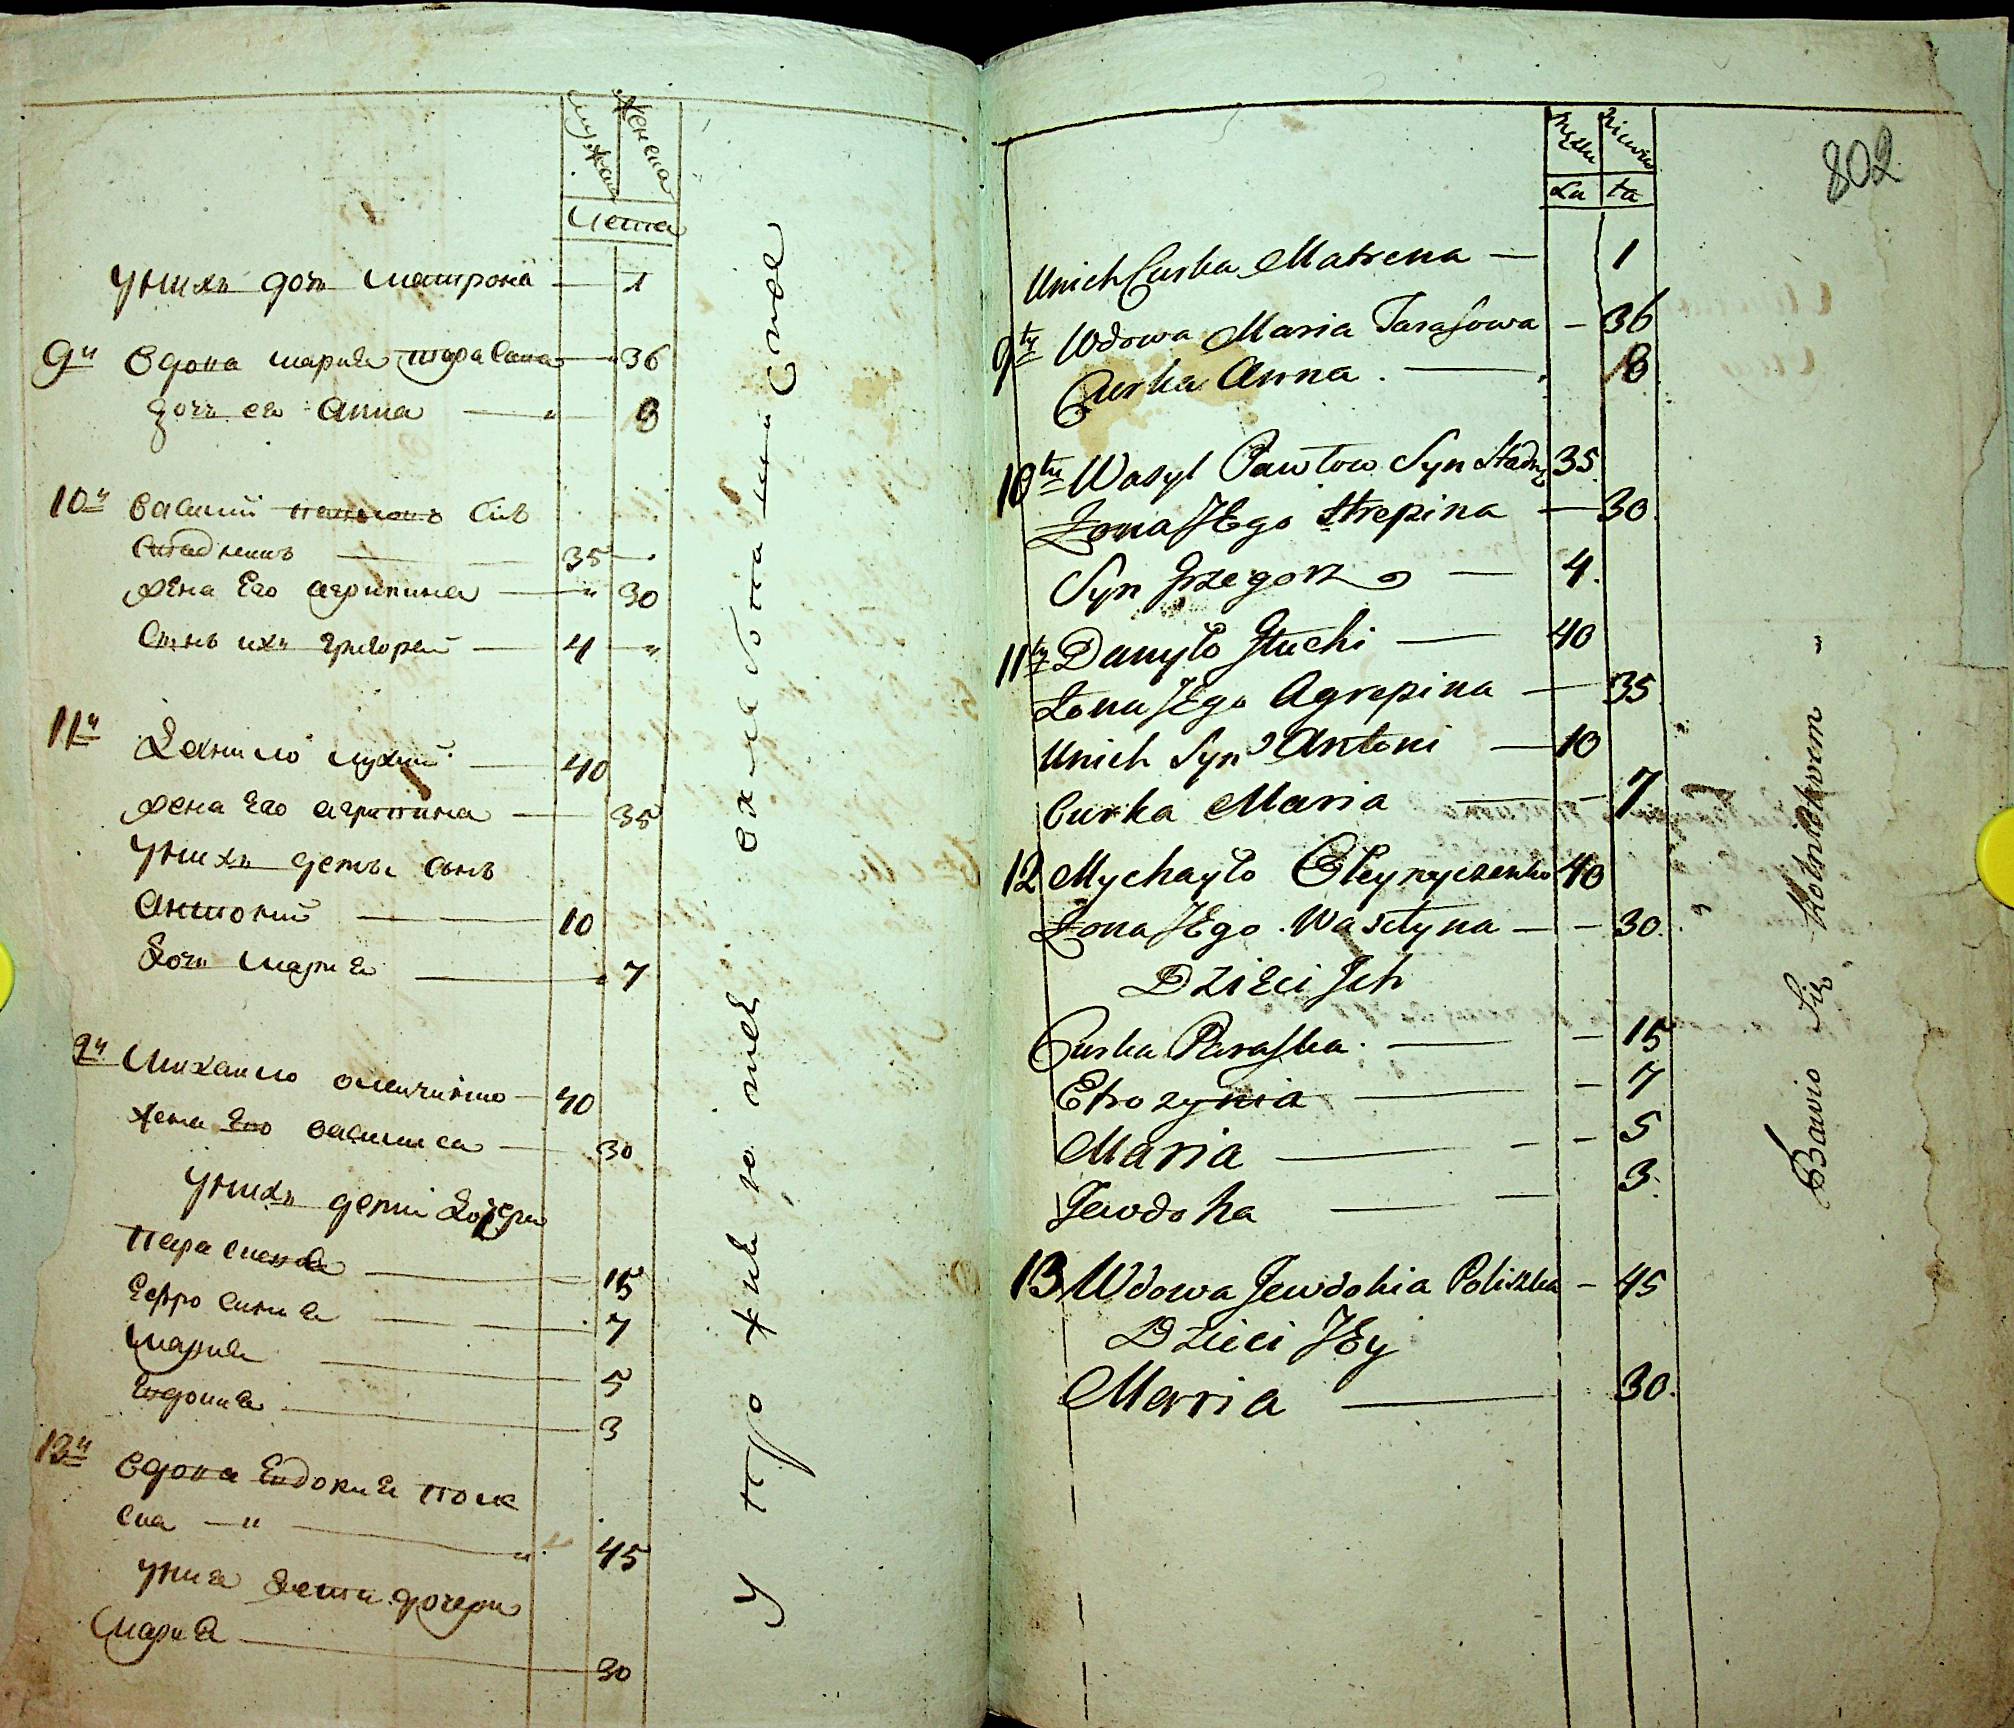 мужска
женска
Лета
У нихъ дочь матрона — 1
9й вдова мария тарасова — 36
дочь ея Анна — " 8
10й василий павловъ сынъ
Стадникъ — 35 — "
жена Его агрипина — " 30
Сынъ ихъ григорей — 4 — "
11й Данило глухий — 40
жена Его агрипина — 35
У нихъ деты сынъ
Антоний — 10
Дочь мария — " 7
Михаило олейниченко — 40
жена Его василиса — 30
У нихъ дети Дочери
Парасковия — 15
Ефросиния — 7
мария — 5
Евдокия — 3
13й вдова Евдокия полж
ска — " — " 45
У ния дети дочери
мария — 30
У прожив
802
Męzka
La ta
Unich Curka Matrena — 1
9ty Wdowa Maria Tarasowa — 36
Curka Anna . — 8
10ty Wasyl Pawłow Syn Stadn 35
Zona JEgo Hrepina — 30.
Syn Grzegorz — 4.
11ty Danyło Głuchi — 40
Zona JEgo Agrepina — 35
Unich Syn Antoni — 10
Curka Maria — 7
12 Mychayło Oleynyczenko 40
Zona JEgo Wasctyna — 30.
Dzieci Jch
Curka Paraska . — 15
Efrozynia — 7
Maria — 5
Jewdoha — 3.
13 Wdowa Jewdokia Poliszka — 45
Dzieci JEy
Marria — 30.
Bawio Się